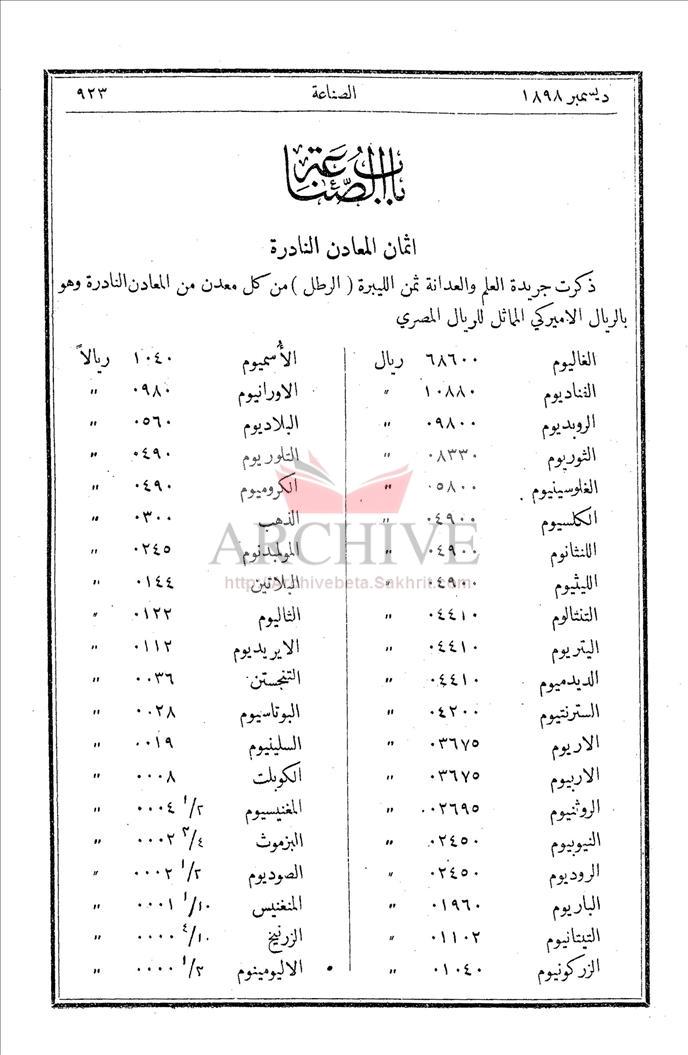 ديسمبر ١٨٩٨ الصناعة ٩٢٣
باب الصناعة
اثمان المعادن النادرة
ذكرت جريدة العلم والعدانة ثمن الليبرة ( الرطل ) من كل معدن من المعادن النادرة وهو
بالريال الاميركي المماثل للريال المصري
الغاليوم ٦٨٦٠٠ ريال
الڤناديوم ١٠٨٨٠ "
الروبديوم ٠٩٨٠٠ "
الثوريوم ٠٨٣٣٠ "
الغلوسينيوم ٠٥٨٠٠ "
الكلسيوم ٠٤٩٠٠ "
اللنثانوم ٠٤٩٠٠ "
الليثيوم ٠٤٩٠٠ "
التنتالوم ٠٤٤١٠ "
اليتريوم ٠٤٤١٠ "
الديدميوم ٠٤٤١٠ "
السترنتيوم ٠٤٢٠٠ "
الاريوم ٠٣٦٧٥ "
الاربيوم ٠٣٦٧٥ "
الروثنيوم ٠٢٦٩٥ "
النيوبيوم ٠٢٤٥٠ "
الروديوم ٠٢٤٥٠ "
الباريوم ٠١٩٦٠ "
التيتانيوم ٠١١٠٢ "
الزركونيوم ٠١٠٤٠ "
الأسميوم ١٠٤٠ ريالاً
الاورانيوم ٠٩٨٠ "
البلاديوم ٠٥٦٠ "
التلوريوم ٠٤٩٠ "
الكروميوم ٠٤٩٠ "
الذهب ٠٣٠٠ "
المولبدنوم ٠٢٤٥ "
البلاتين ٠١٤٤ "
الثاليوم ٠١٢٢ "
الايريديوم ٠١١٢ "
التنجستن ٠٠٣٦ "
البوتاسيوم ٠٠٢٨ "
السلينيوم ٠٠١٩ "
الكوبلت ٠٠٠٨ "
المغنيسيوم ٠٠٠٤ ١/٢ "
البزموث ٠٠٠٢ ٣/٤ "
الصوديوم ٠٠٠٢ ١/٢ "
المنغنيس ٠٠٠١ ١/١٠ "
الزرنيخ ٠٠٠٠ ٤/١٠ "
الاليومينوم ٠٠٠٠ ١/٣ "
ARCHIVE
http://Archivebeta.Sakhrit.com